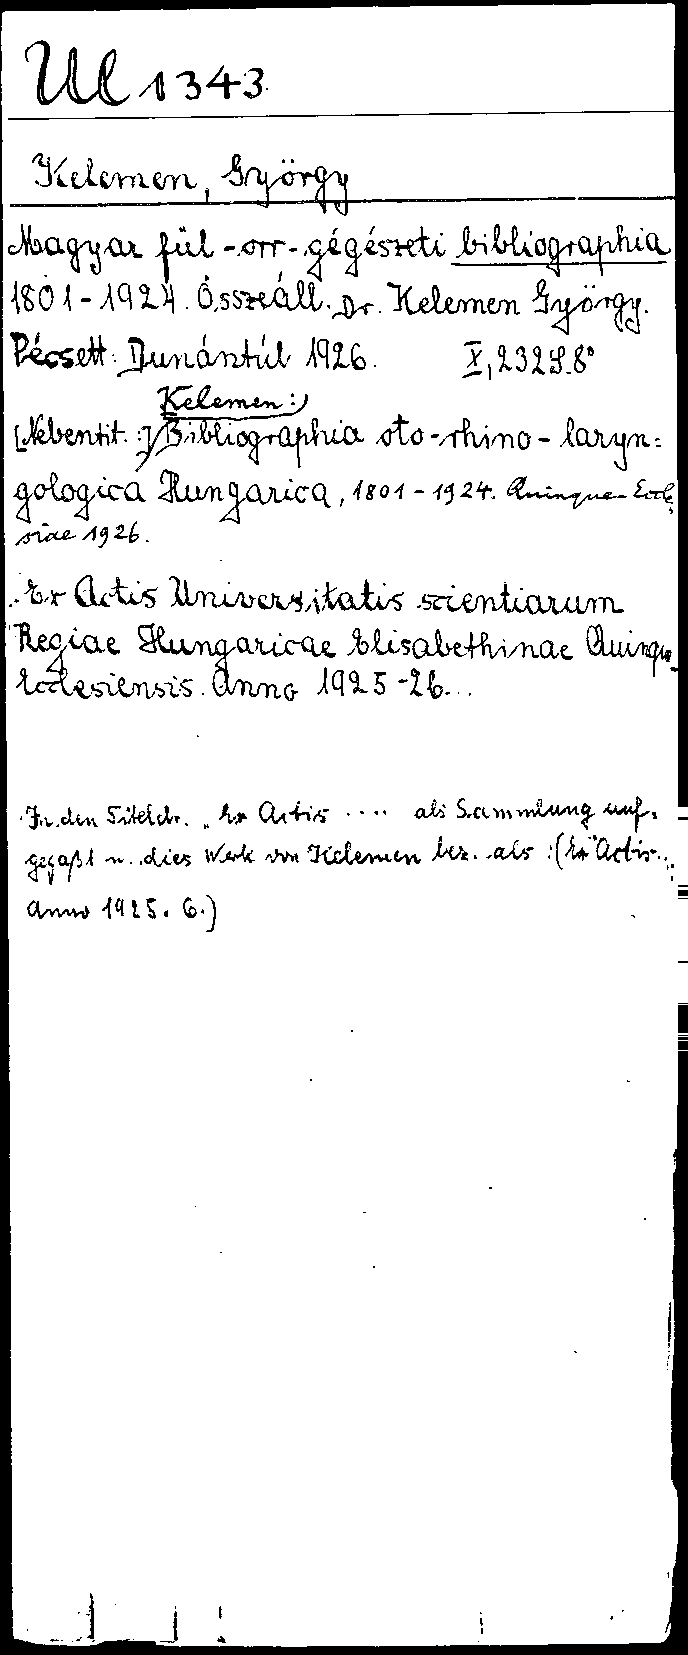 Ul 1343
Kelemen, György
Magyar fül-orr-gégészeti bibliographia
1801-1924. Összeáll. Dr. Kelemen György.
Pécsett: Dunántúl 1926. X, 232 S. 8°
Kelemen:)
[Nebentit.:] Bibliographia oto-rhino-laryn=
gologica Hungarica, 1801-1924. Quinque-Eccle,
siae 1926.
Ex Actis Universitatis scientiarum
Regiae Hungaricae Elisabethinae Quinque-
Ecclesiensis. Anno 1925-26...
In den Titeldr. "Ex Actis .... als Sammlung auf=
gefaßt u. dies Werk von Kelemen bez. als: (Ex Actis...
Anno 1925. 6.)